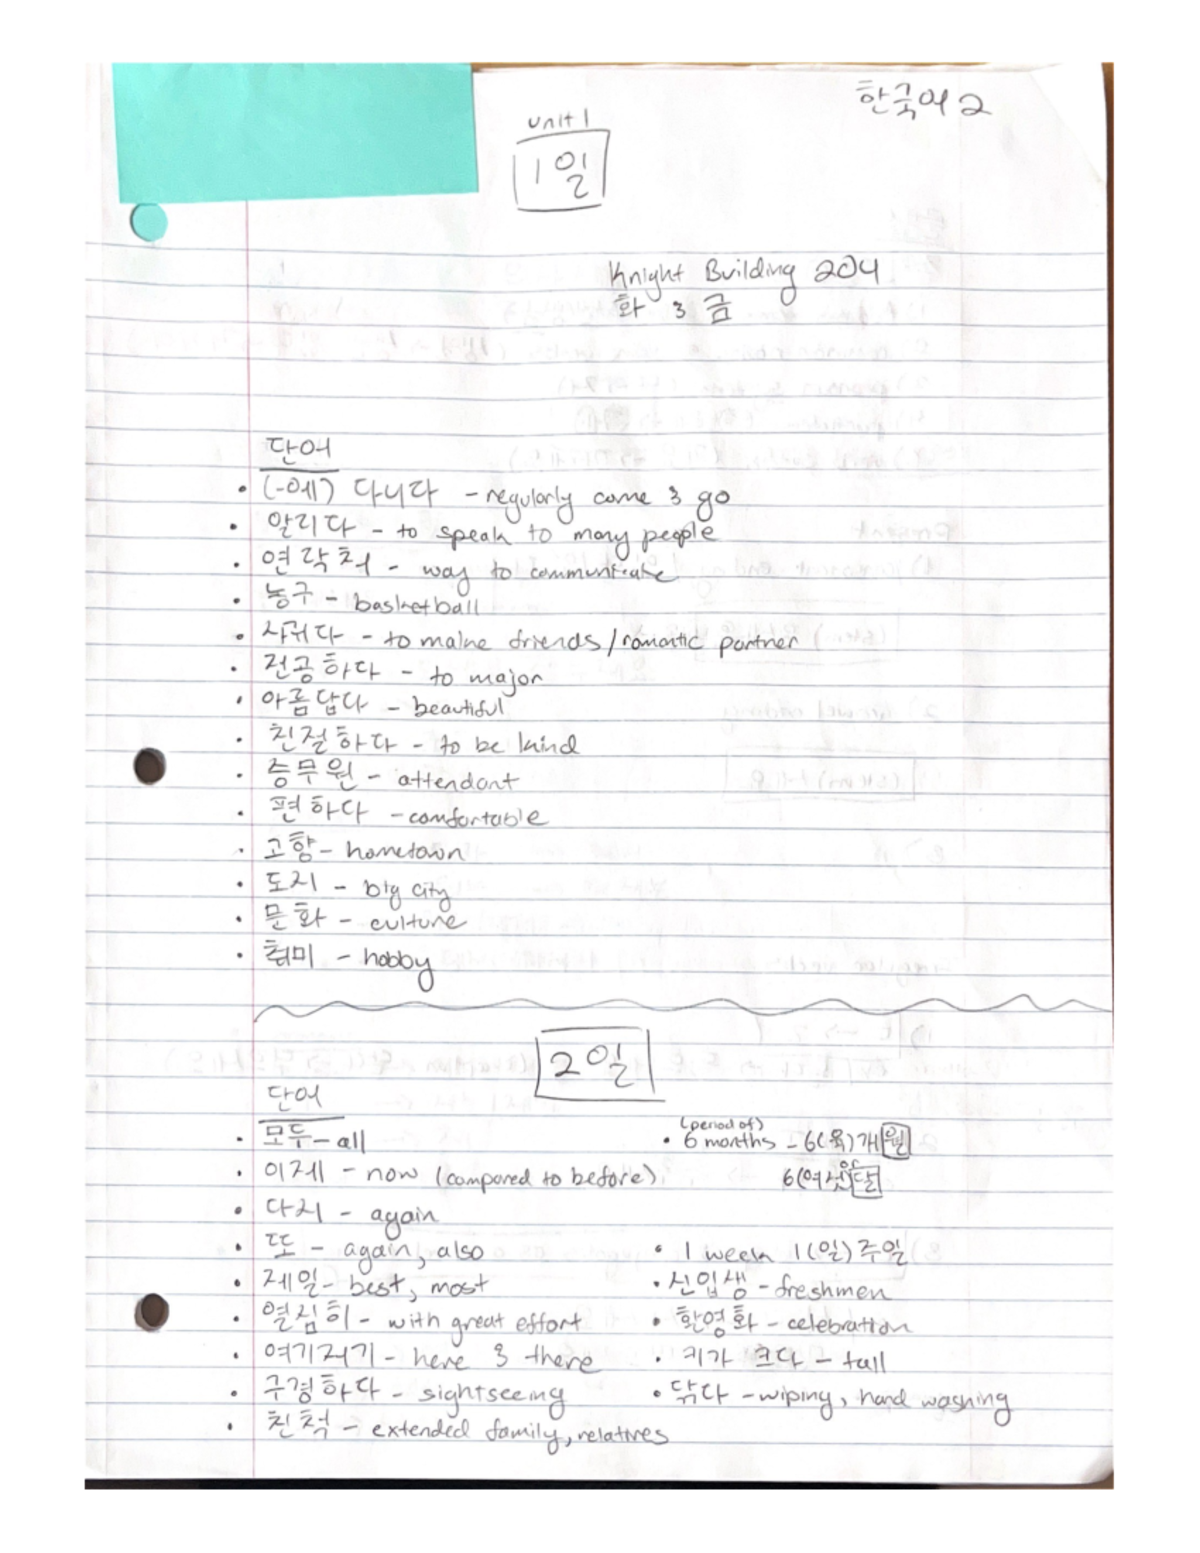 한국어 2
unit 1
1일
Knight Building 204
화 & 금
단어
• (-에) 다니다 - regularly come & go
• 알리다 - to speak to many people
• 연락처 - way to communicate
• 농구 - basketball
• 사귀다 - to make friends/romantic partner
• 전공하다 - to major
• 아름답다 - beautiful
• 친절하다 - to be kind
• 승무원 - attendant
• 편하다 - comfortable
• 고향 - hometown
• 도시 - big city
• 문화 - culture
• 취미 - hobby
2일
단어
• 모두 - all
• 이제 - now (compared to before)
• 다시 - again
• 또 - again, also
• 제일 - best, most
• 열심히 - with great effort
• 여기저기 - here & there
• 구경하다 - sightseeing
• 친척 - extended family, relatives
(period of)
• 6 months - 6(육)개월
or
6(여섯)달
• 1 week 1(일)주일
• 신입생 - freshmen
• 환영화 - celebration
• 키가 크다 - tall
• 닦다 - wiping, hand washing